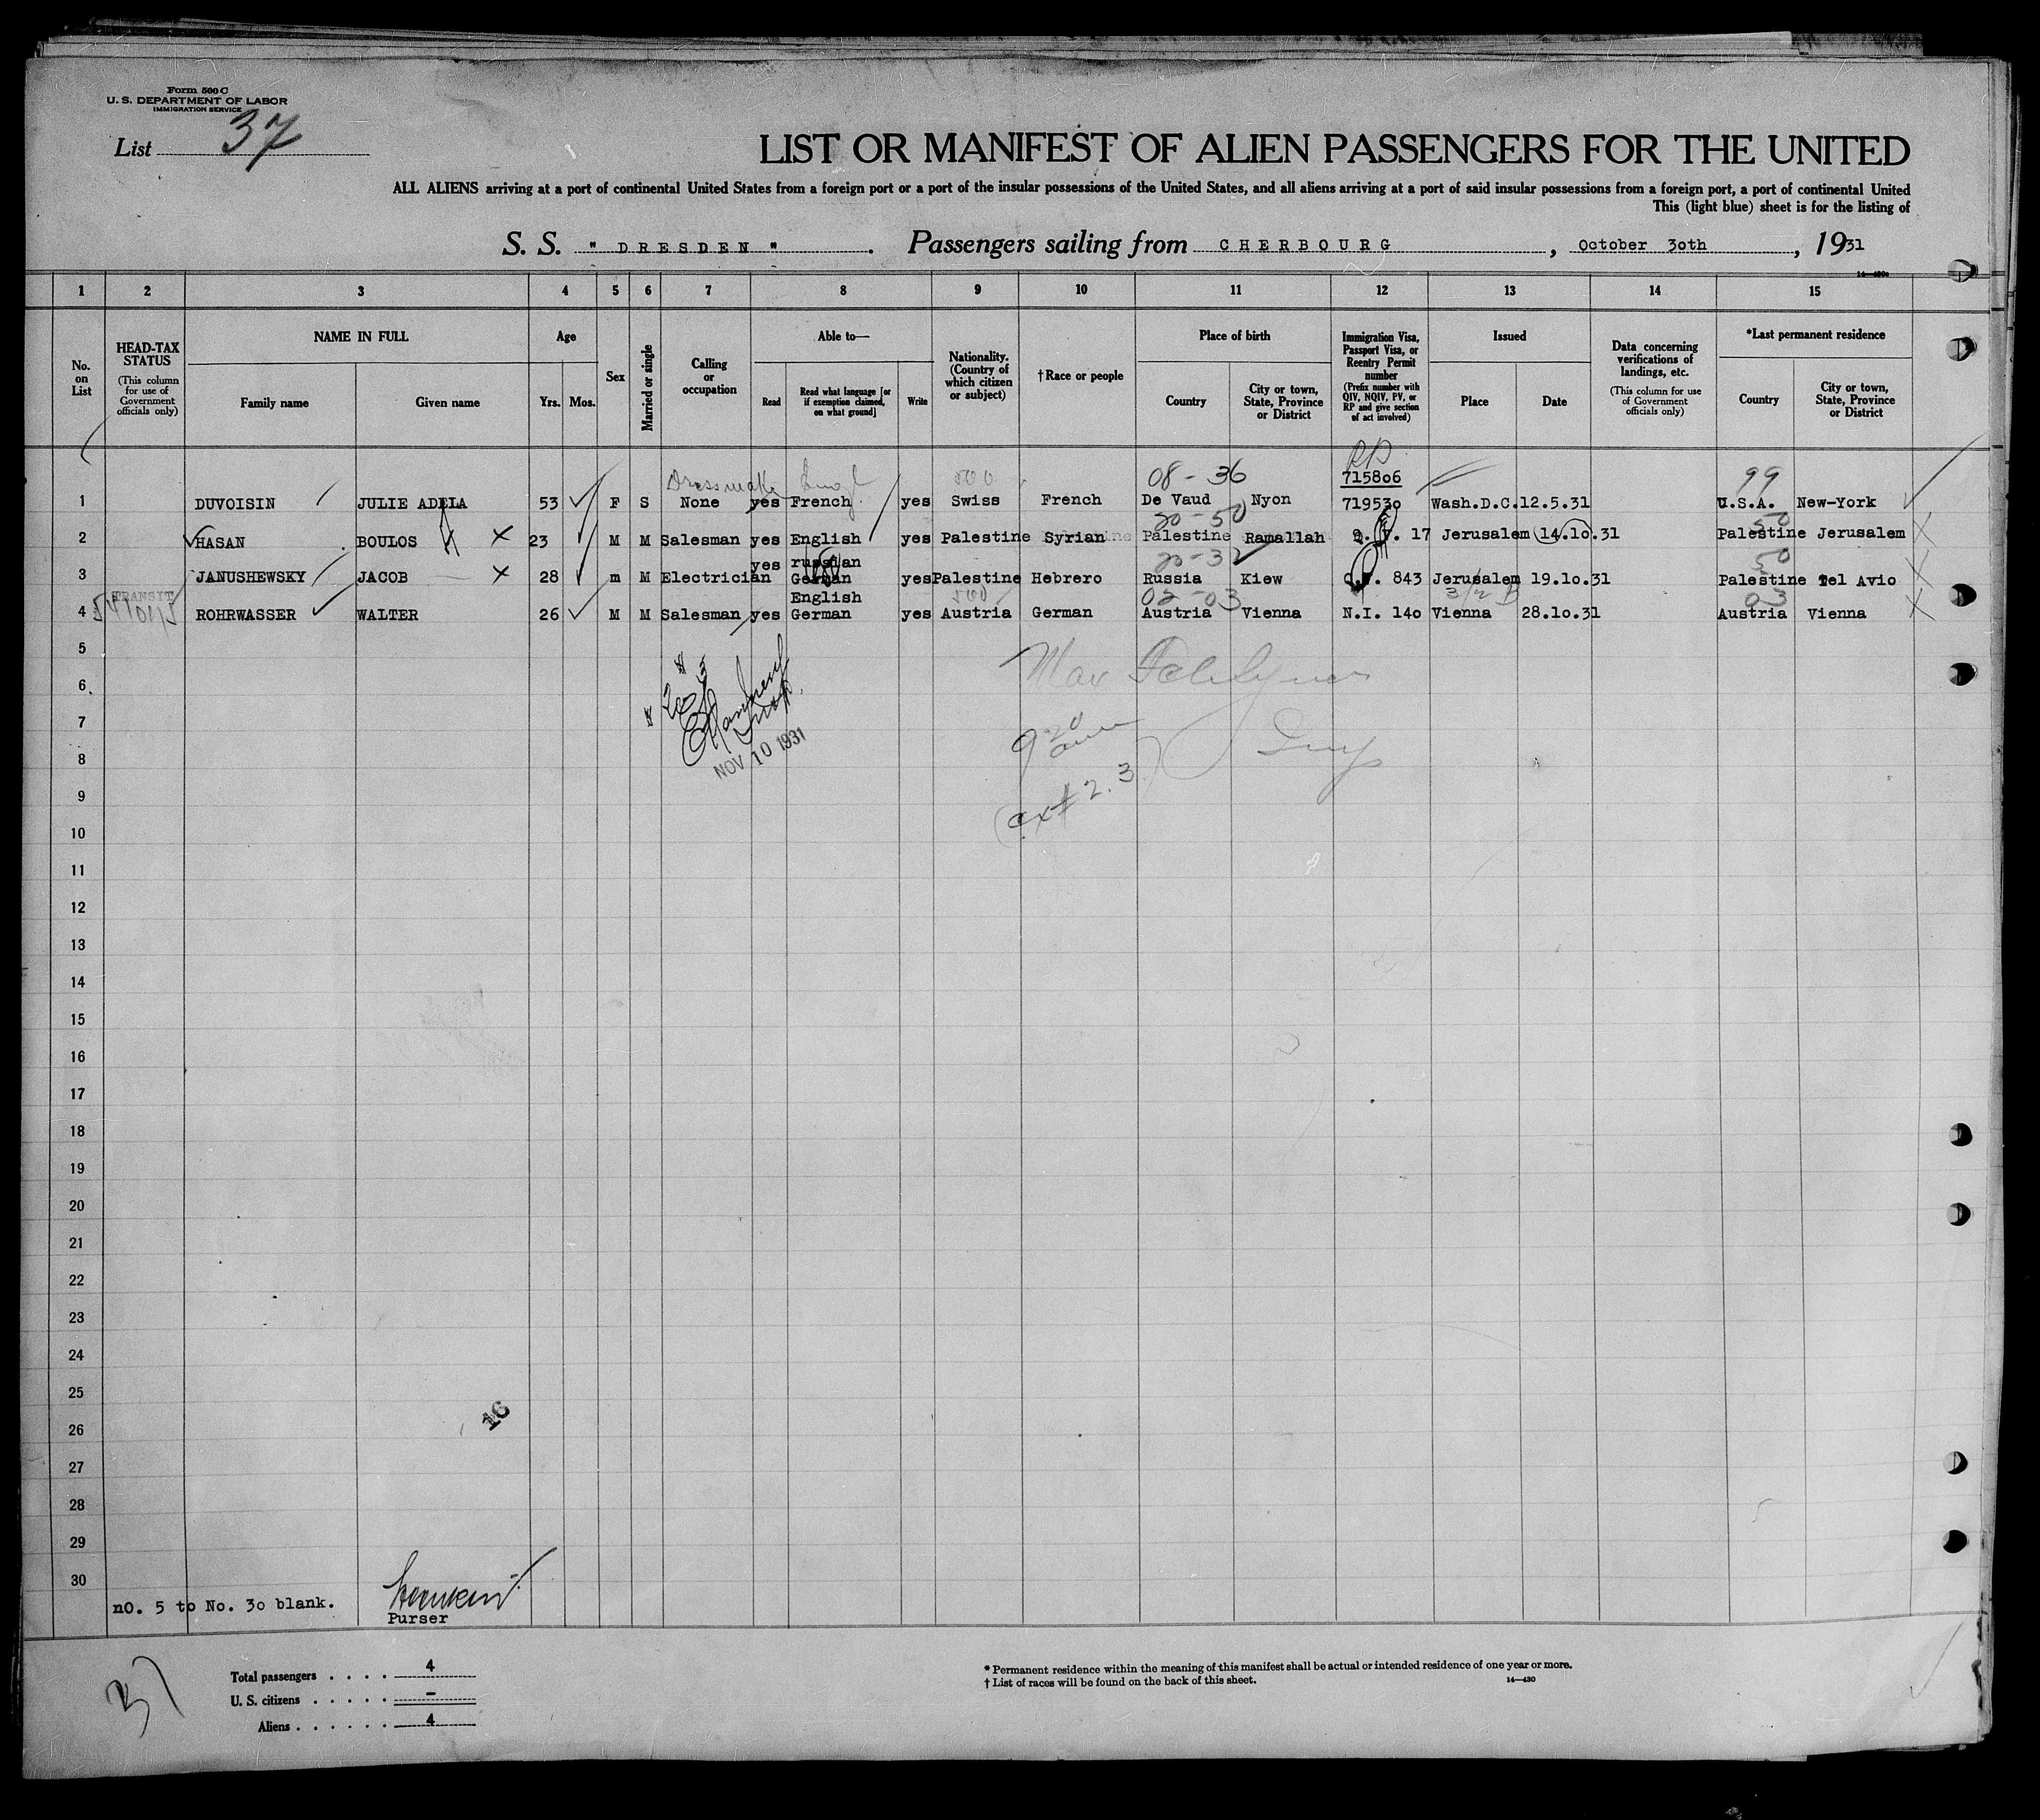 Form 500 C
U. S. DEPARTMENT OF LABOR
IMMIGRATION SERVICE
List 37
LIST OR MANIFEST OF ALIEN PASSENGERS FOR THE UNITED
ALL ALIENS arriving at a port of continental United States from a foreign port or a port of the insular possessions of the United States, and all aliens arriving at a port of said insular possessions from a foreign port, a port of continental United
This (light blue) sheet is for the listing of
S. S. " DRESDEN ". Passengers sailing from CHERBOURG, October 30th, 1931
1 2 3 4 5 6 7 8 9 10 11 12 13 14 15
No. on List
HEAD-TAX STATUS (This column for use of Government officials only)
NAME IN FULL
Family name Given name
Age
Yrs. Mos.
Sex
Married or single
Calling or occupation
Able to—
Read Read what language [or if exemption claimed, on what ground] Write
Nationality. (Country of which citizen or subject)
†Race or people
Place of birth
Country City or town, State, Province or District
Immigration Visa, Passport Visa, or Reentry Permit number (Prefix number with QIV, NQIV, PV, or RP and give section of act involved)
Issued
Place Date
Data concerning verifications of landings, etc. (This column for use of Government officials only)
*Last permanent residence
Country City or town, State, Province or District
RP
Dressmake Engl 500 08-36 715806 99
1 DUVOISIN JULIE ADELA 53 F S None yes French yes Swiss French De Vaud Nyon 719530 Wash.D.C. 12.5.31 U.S.A. New-York
20-50 50
2 HASAN BOULOS 23 M M Salesman yes English yes Palestine Syrian Palestine Ramallah Q.V. 17 Jerusalem 14.10.31 Palestine Jerusalem
yes russian 20-32 50
3 JANUSHEWSKY JACOB 28 m M Electrician German yes Palestine Hebrero Russia Kiew Q.V. 843 Jerusalem 19.10.31 Palestine Tel Avio
TRANSIT English 500 02-03 3/2 B 03
4 ROHRWASSER WALTER 26 M M Salesman yes German yes Austria German Austria Vienna N.I. 140 Vienna 28.10.31 Austria Vienna
5
6
7
8
9
10
11
12
13
14
15
16
17
18
19
20
21
22
23
24
25
26
27
28
29
30
Max
NOV 10 1931
2. 3
16
nO. 5 to No. 30 blank.
Purser
37
Total passengers . . . . 4
U. S. citizens . . . . . -
Aliens . . . . . . 4
* Permanent residence within the meaning of this manifest shall be actual or intended residence of one year or more.
† List of races will be found on the back of this sheet.
14—430